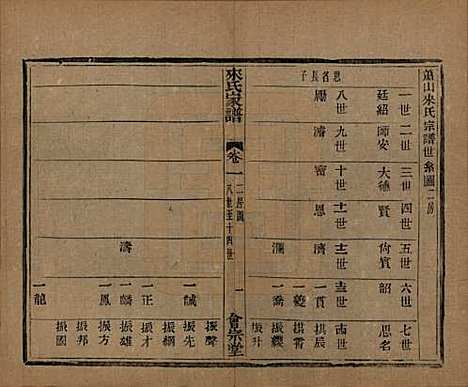 蕭山來氏宗譜世系圖二房
一世 二世 三世 四世 五世 六世 七世
廷紹 師安 大德 賢 尙賓 韶 思名
思名長子
八世 九世 十世 十一世 十二世 十三世 十四世
勵 濤 密 恩 濟 一貫 拱辰
一夔 拱霄
瀾 一喬 振纓
振升
來氏家譜
卷一 二房圖 八世至十四世 一 會宗堂
振聲
一誠 振先
振綱
一正 振才
濤 一麟 振雄
一鳳 振方
振邦
一龍 振國